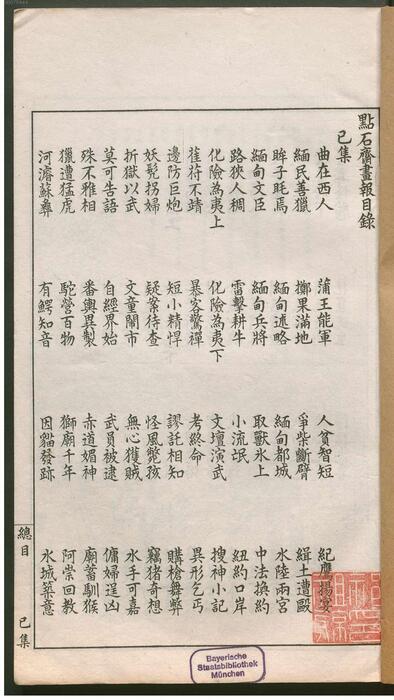 點石齋畫報目錄
己集
曲在西人　蒲王能軍　人貧智短　紀鷹揚宴
緬民善獵　擲果滿地　爭柴斷臂　緝土遭毆
眸子眊焉　緬甸述略　緬甸都城　水陸兩宮
緬甸文臣　緬甸兵將　取獸氷上　中法換約
路狹人稠　雷擊耕牛　小流氓　紐約口岸
化險為夷上　化險為夷下　文壇演武　搜神小記
萑苻不靖　暴客驚禪　考終命　異形乞丐
邊防巨炮　短小精悍　謬託相知　購槍舞弊
妖髡拐婦　疑案待查　怪風斃孩　竊猪奇想
折獄以武　文童鬧市　無心獲賊　水手可嘉
莫可告語　自經界始　武員被逮　傭婦逞凶
殊不雅相　番輿異製　赤道媚神　廟蓄馴猴
獵遭猛虎　駝營百物　獅廟千年　阿崇回教
河濬蘇彝　有鰐知音　因貓發跡　氷城築意
總目　己集
Bayerische
Staatsbibliothek
München